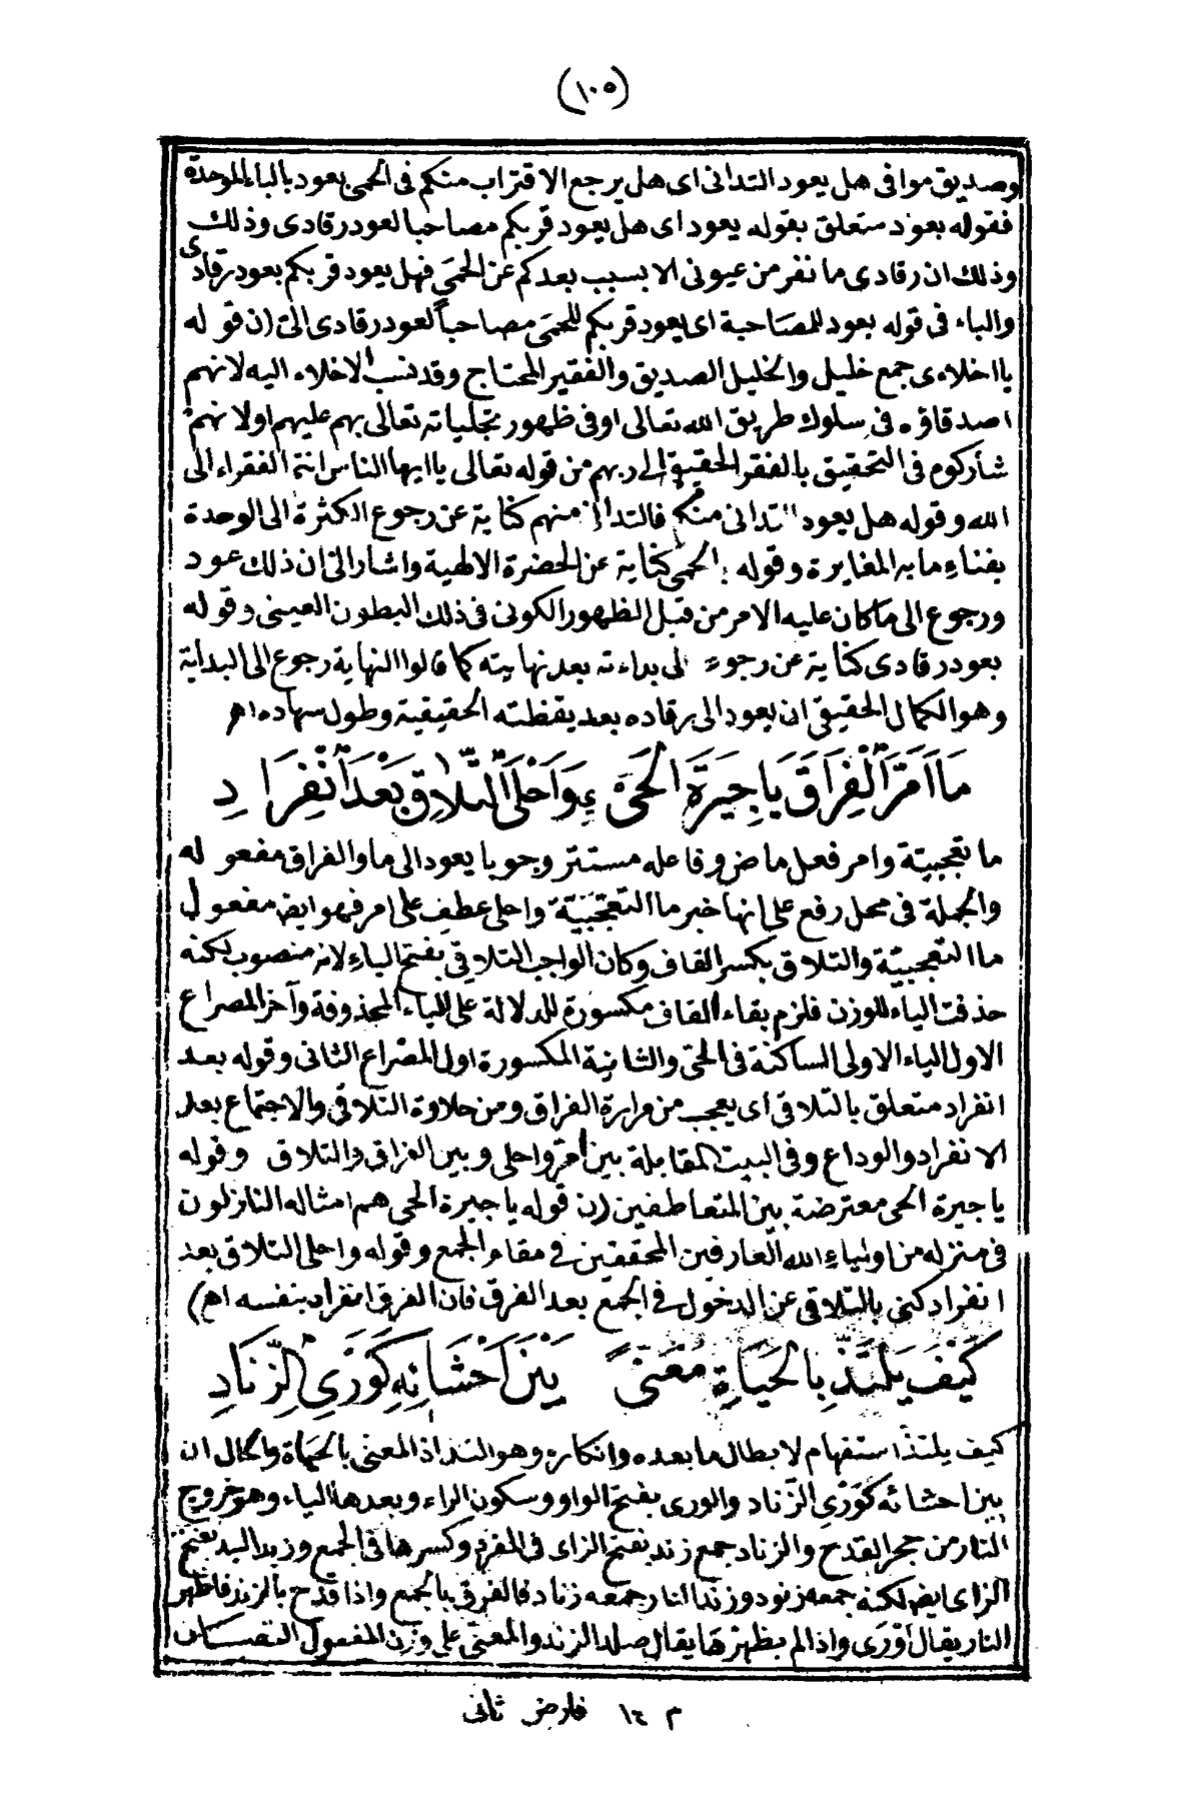 (١٠٥)
وصديق موافى هل يعود التدانى اى هل يرجع الاقتراب منكم فى الحمى بعود بالباء الموحدة
فقوله بعود متعلق بقوله يعود اى هل يعود قربكم مصاحبا لعود رقادى وذلك
وذلك ان رقادى ما نفر من عيونى الا بسبب بعدكم عن الحمَى فهل يعود قربكم بعود رقادى
والباء فى قوله بعود للمصَاحبة اى يعود قربكم للحمَى مصاحباً لعود رقادى الىّ (ن قوله
يا اخلاءى جمع خليل والخليل الصديق والفقير المحتاج وقد نسب الاخلاء اليه لانهم
اصدقاؤه فى سلوك طريق الله تعالى اوفى ظهور تجلياته تعالى بهم عليهم اولانهم
شاركوه فى التحقيق بالفقر الحقيقى الى ربهم من قوله تعالى يا ايها الناس انتم الفقراء الى
الله وقوله هل يعود التدانى منكم فالتدانى منهم كناية عن رجوع الكثرة الى الوحدة
بفناءِ ما به المغايرة وقوله بالحمى كناية عن الحضرة الالهية واشار الى ان ذلك عود
ورجوع الى ما كان عليه الامر من قبل الظهور الكونى فى ذلك البطون العينى وقوله
بعود رقادى كناية عن رجوعه الى بداءته بعد نهايته كما قالوا النهاية رجوع الى البداية
وهو الكمال الحقيقى ان يعود الى رقاده بعد يقظته الحقيقية وطول سهاده اهـ
مَا اَمَرَّ الْفِرَاقَ يَا جِيرَةَ الْحَىْ ىِ وَاَحْلَى التَّلَاقِ بَعْدَ اَنْفِرَادِ
ما تعجبية وامر فعل ماض وفاعله مستتر وجوبا يعود الى ما والفراق مفعوله
والجملة فى محل رفع على انها خبر ما التعجبية واحلى عطف على امر فهو ايض مفعول
ما التعجبية والتلاق بكسر القاف وكان الواجب التلاقى بفتح الياء لانه منصوب لكنه
حذفت الياء للوزن فلزم بقاء القاف مكسورة للدلالة على الياء المحذوفة وآخر المصراع
الاول الياء الاولى الساكنة فى الحىّ والثانية المكسورة اول المصراع الثانى وقوله بعد
انفراد متعلق بالتلاقى اى يعجب من مرارة الفراق ومن حلاوة التلاقى والاجتماع بعد
الانفراد والوداع وفى البيت المقابلة بين امرّ واحلى وبين الفراق والتلاق وقوله
يا جيرة الحى معترضة بين المتعاطفين (ن قوله يا جيرة الحى هم امثاله النازلون
فى منزله من اولياءِ الله العارفين المحققين فى مقام الجمع وقوله واحلى التلاق بعد
انفراد كنى بالتلاقى عن الدخول فى الجمع بعد الفرق فان الفرق انفراد بنفسه اهـ)
كَيْفَ يَلْتَذُّ بِالْحَيَاةِ مُعَنًّى بَيْنَ اَحْشَائِهِ كَوَرْىِ الزِّنَادِ
كيف يلتذ استفهام لابطال ما بعده وانكاره وهو التذاذ المعنى بالحياة والحال ان
بين احشائه كَوَرْىِ الزّناد والورى بفتح الواو وسكون الراء وبعدها الياء وهو خروج
النار من حجر القدح والزناد جمع زند بفتح الزاى فى المفرد وكسرها فى الجمع وزند اليد بفتح
الزاى ايض لكنه جمعه زنود وزند النار جمعه زناد فالفرق بالجمع واذا قدح بالزند فاظهر
النار يقال اَوْرَى واذا لم يظهرها يقال صلد الزند والمعنّى على وزن المفعول التعبان
م ١٤ فارض ثانى